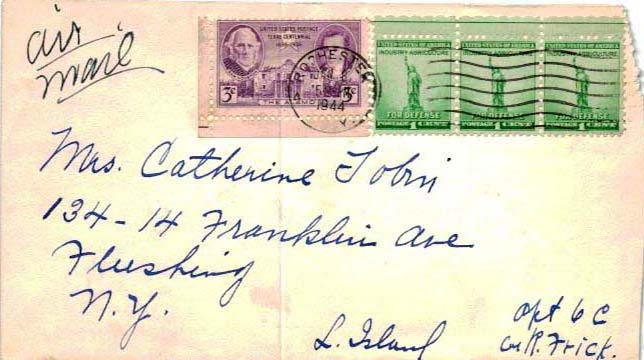 air
mail
UNITED STATES POSTAGE
TEXAS CENTENNIAL
1836-1936
3¢ 3¢
THE ALAMO
ROCHESTER
1944
UNITED STATES OF AMERICA UNITED STATES OF AMERICA UNITED STATES OF AMERICA
INDUSTRY AGRICULTURE
FOR DEFENSE FOR DEFENSE FOR DEFENSE
POSTAGE 1 CENT POSTAGE 1 CENT POSTAGE 1 CENT
Mrs. Catherine Tobin
134-14 Franklin Ave
Flushing
N.Y.
L. Island
Apt 6C
c/o R. Frick.